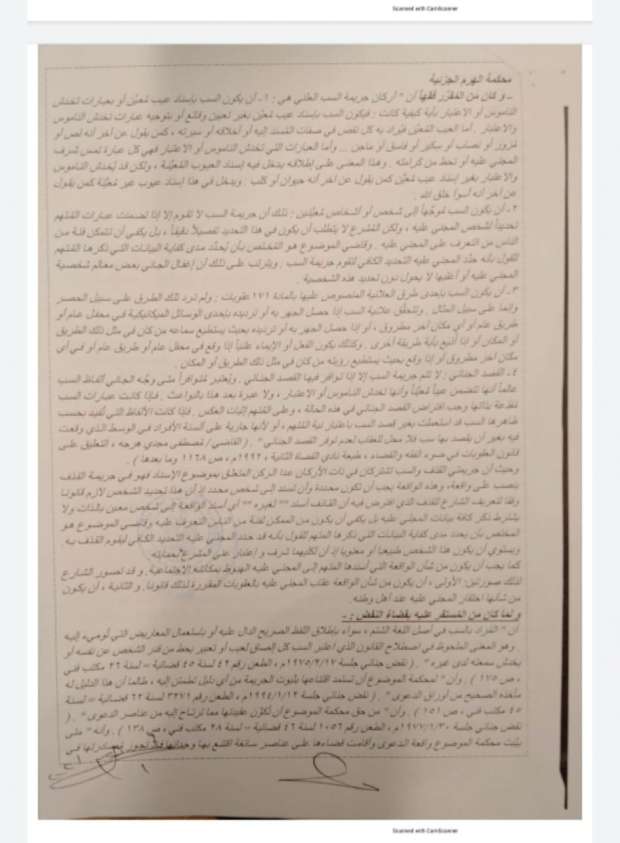 Scanned with CamScanner
محكمة الهرم الجزئية
ـ و كان من المقرر فقهاً أن " أركان جريمة السب العلني هي : ١ـ أن يكون السب بإسناد عيب مُعيَّن أو بعبارات تخدش
الناموس أو الاعتبار بأية كيفية كانت : فيكون السب بإسناد عيب مُعيَّن بغير تعيين وقائع أو بتوجيه عبارات تخدش الناموس
والاعتبار . أما العيب المُعيَّن فيُراد به كل نقص في صفات المُسند إليه أو أخلاقه أو سيرته ، كمن يقول عن آخر أنه لص أو
مُزور أو نصاب أو سكير أو فاسق أو ماجن ... وأما العبارات التي تخدش الناموس أو الاعتبار فهي كل عبارة تمس شرف
المجني عليه أو تحط من كرامته . وهذا المعنى على إطلاقه يدخل فيه إسناد العيوب المُعيَّنة ، ولكن قد يُخدش الناموس
والاعتبار بغير إسناد عيب مُعيَّن كمن يقول عن آخر أنه حيوان أو كلب . ويدخل في هذا إسناد عيوب غير مُعيَّنة كمن يقول
عن آخر أنه أسوأ خلق الله .
٢ـ أن يكون السب مُوجَّهاً إلى شخص أو أشخاص مُعيَّنين : ذلك أن جريمة السب لا تقوم إلا إذا تضمنت عبارات المُتهم
تحديداً لشخص المجني عليه ، ولكن المُشرع لا يتطلب أن يكون في هذا التحديد تفصيلاً دقيقاً ، بل يكفي أن تتمكن فئة من
الناس من التعرف على المجني عليه . وقاضي الموضوع هو المُختص بأن يُحدِّد مدى كفاية البيانات التي ذكرها المُتهم
للقول بأنه حدَّد المجني عليه التحديد الكافي لتقوم جريمة السب . ويترتب على ذلك أن إغفال الجاني بعض معالم شخصية
المجني عليه أو أغلبها لا يحول دون تحديد هذه الشخصية .
٣ـ أن يكون السب بإحدى طرق العلانية المنصوص عليها بالمادة ١٧١ عقوبات : ولم ترد تلك الطرق على سبيل الحصر
وإنما على سبيل المثال . وتتحقَّق علانية السب إذا حصل الجهر به أو ترديده بإحدى الوسائل الميكانيكية في محفل عام أو
طريق عام أو أي مكان آخر مطروق ، أو إذا حصل الجهر به أو ترديده بحيث يستطيع سماعه من كان في مثل ذلك الطريق
أو المكان أو إذا أذيع بأية طريقة أخرى . وكذلك يكون الفعل أو الإيماء علنياً إذا وقع في محفل عام أو طريق عام أو في أي
مكان آخر مطروق أو إذا وقع بحيث يستطيع رؤيته من كان في مثل ذلك الطريق أو المكان .
٤ـ القصد الجنائي : لا تتم جريمة السب إلا إذا توافر فيها القصد الجنائي . ويُعتبر مُتوافراً متى وجَّه الجاني ألفاظ السب
عالماً أنها تتضمن عيباً مُعيَّناً وأنها تخدش الناموس أو الاعتبار ، ولا عبرة بعد هذا بالبواعث . فإذا كانت عبارات السب
مُقذعة بذاتها وجب افتراض القصد الجنائي في هذه الحالة ، وعلى المُتهم إثبات العكس . فإذا كانت الألفاظ التي تُفيد بحسب
ظاهرها السب قد استعملت بغير قصد السب باعتبار نية المُتهم ، أو لأنها جارية على ألسنة الأفراد في الوسط الذي وقعت
فيه بغير أن يقصد بها سب فلا محل للعقاب لعدم توفر القصد الجنائي " . ( القاضي / مُصطفى مجدي هرجه ، التعليق على
قانون العقوبات في ضوء الفقه والقضاء ، طبعة نادي القضاة الثانية ، ١٩٩٢م ، ص ١١٦٨ وما بعدها ) .
وحيث أن جريمتي القذف والسب تشتركان في ذات الأركان عدا الركن المتعلق بموضوع الإسناد فهو في جريمة القذف
ينصب على واقعة، وهذه الواقعة يجب أن تكون محددة وأن تسند إلى شخص محدد إذ أن هذا تحديد الشخص لازم قانونا
وفقا لتعريف الشارع للقذف الذي افترض فيه أن القاذف أسند "" لغيره "" أي أسند الواقعة إلى شخص معين بالذات، ولا
يشترط ذكر كافة بيانات المجني عليه بل يكفي أن يكون من الممكن لفئة من الناس التعرف عليه وقاضي الموضوع هو
المختص بأن يحدد مدى كفاية البيانات التي ذكرها المتهم للقول بأنه قد حدد المجني عليه التحديد الكافي ليقوم القذف به
ويستوي أن يكون هذا الشخص طبيعيا أو معنويا إذ أن لكليهما شرف و إعتبار عني المشرع بحمايته.
كما يجب أن يكون من شأن الواقعة التي أسندها المتهم إلى المجني عليه الهبوط بمكانته الاجتماعية، و قد تصور الشارع
لذلك صورتين: الأولى ، أن يكون من شأن الواقعة عقاب المجني عليه بالعقوبات المقررة لذلك قانونا، و الثانية ، أن يكون
من شأنها احتقار المجني عليه عند أهل وطنه.
و لما كان من المستقر عليه بقضاء النقض : ـ
أن " المُراد بالسب في أصل اللغة الشتم ، سواء بإطلاق اللفظ الصريح الدال عليه أو باستعمال المعاريض التي تُومئ إليه
، وهو المعنى الملحوظ في اصطلاح القانون الذي اعتبر السب كل إلصاق لعيب أو تعبير يحط من قدر الشخص عن نفسه أو
يخدش سمعته لدى غيره " . ( نقض جنائي جلسة ١٩٧٥/٢/١٧م ، الطعن رقم ٤٢ لسنة ٤٥ قضائية – لسنة ٢٦ مكتب فني
، ص ١٧٥ ) . وأن " لمحكمة الموضوع أن تستمد اقتناعها بثبوت الجريمة من أي دليل تطمئن إليه ، طالما أن هذا الدليل له
مأخذه الصحيح من أوراق الدعوى " . ( نقض جنائي جلسة ١٩٩٤/١/١٢م ، الطعن رقم ٣٣٧١ لسنة ٦٢ قضائية – لسنة
٤٥ مكتب فني ، ص ١٥١ ) . وأن " من حق محكمة الموضوع أن تُكوِّن عقيدتها مما ترتاح إليه من عناصر الدعوى " . (
نقض جنائي جلسة ١٩٧٧/١/٣٠م ، الطعن رقم ١٠٥٦ لسنة ٤٦ قضائية – لسنة ٢٨ مكتب فني ، ص ١٣٨ ) . وأنه " متى
بيَّنت محكمة الموضوع واقعة الدعوى وأقامت قضاءها على عناصر سائغة اقتنع بها وجدانها فلا تجوز مُصادرتها في
Scanned with CamScanner